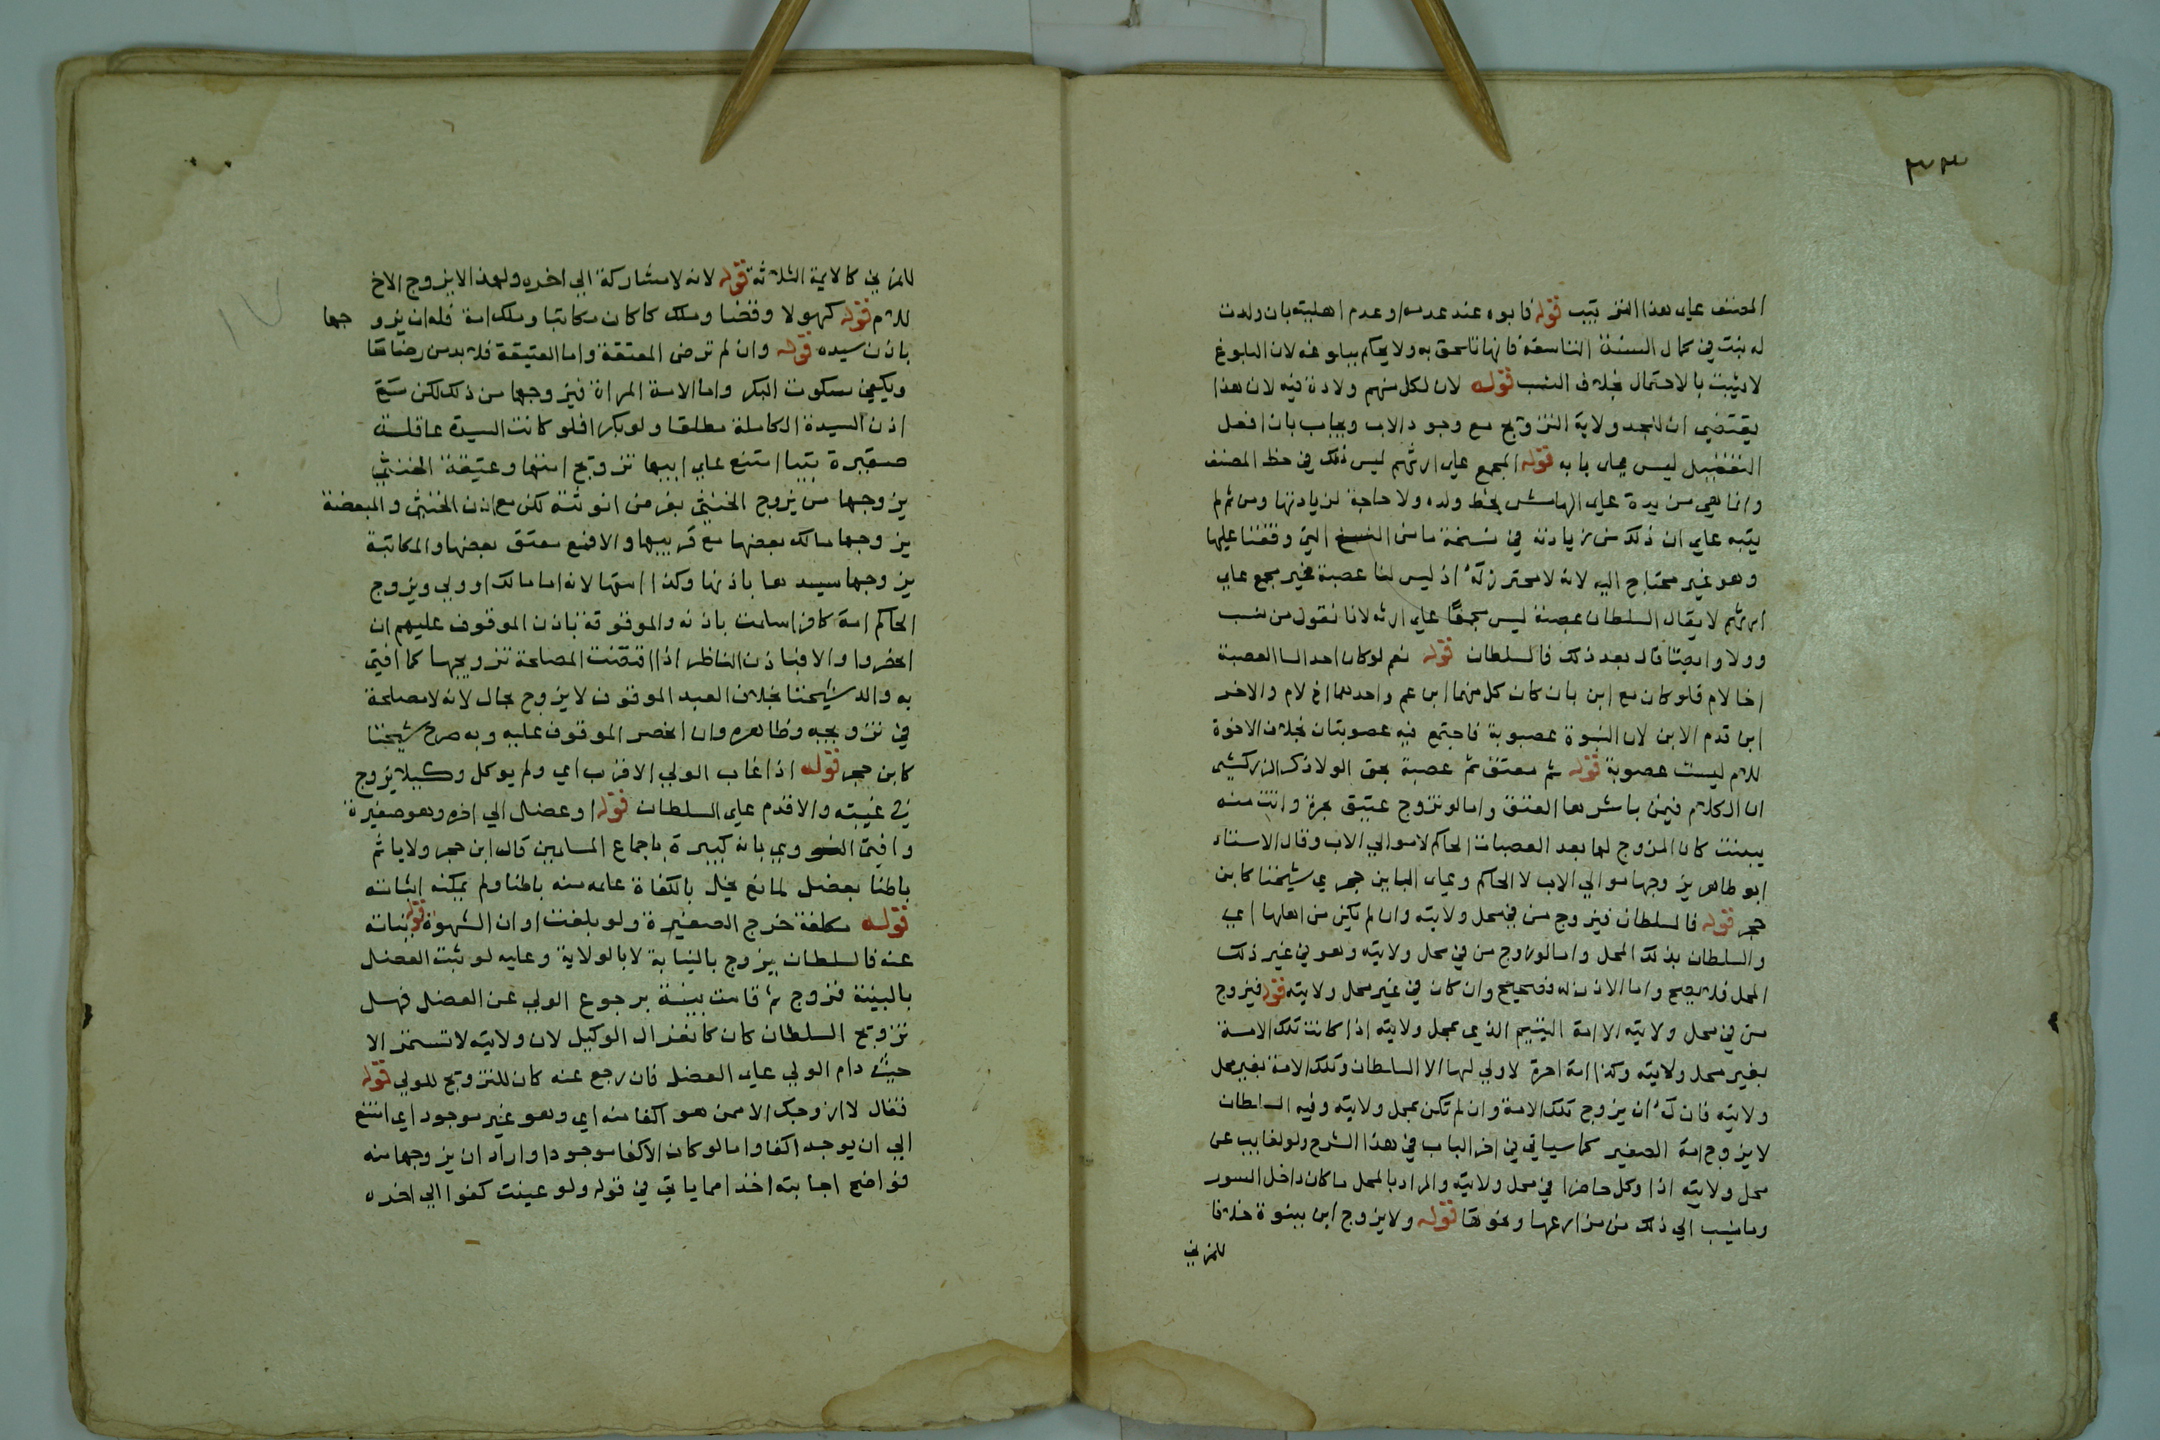 المصنف على هذا الترتيب قوله فابوه عند عدمه او عدم اهليته بان ولدت
له بنت في كمال السنة التاسعة فانها تلحق به ولا يحكم ببلوغه لان البلوغ
لا يثبت بالاحتمال بخلاف النسب قوله لان لكل منهم ولادة فيه لان هذا
يقتضي ان للجد ولاية التزويج مع وجود الاب ويجاب بان افعل
التفضيل ليس على بابه قوله المجمع على ارثهم ليس ذلك في خط المصنف
وانما هي مزيدة على الهامش بخط ولده ولا حاجة لزيادتها ومن ثم لم
ينبه على ان ذلك من زيادته في نسخة ما من النسخ التي وقفنا عليها
وهو غير محتاج اليه لانه لا محترز له اذ ليس لنا عصبة غير مجمع على
ارثهم لا يقال السلطان عصبة ليس مجمعا على ارثه لانا نقول من نسب
وولا وايضا قال بعد ذلك فالسلطان قوله نعم لو كان احد العصبة
اخا لام فلو كان مع ابن بان كان كل منهما ابن عم واحدهما اخ لام والاخر
ابن قدم الابن لان البنوة عصوبة فاجتمع فيه عصوبتان بخلاف الاخوة
للام ليست عصوبة قوله ثم معتق ثم عصبة بحق الولا ذكر الزركشي
ان الكلام فيمن باشرها العتق واما لو تزوج عتيق بحرة واتت منه
ببنت كان المزوج لها بعد العصبات الحاكم لا موالي الاب وقال الاستاد
ابو طاهر يزوجها موالي الاب لا الحاكم وعلى البابين جرى شيخنا كابن
حجر قوله فالسلطان فيزوج من في محل ولايته وان لم يكن من اهلها اي
والسلطان بذلك المحل واما لو زوج من في محل ولايته وهو في غير ذلك
المحل فلا يصح واما الاذن له فصحيح وان كان في غير محل ولايته قوله فيزوج
من في محل ولايته لا امة اليتيم الذي بمحل ولايته اذا كانت تلك الامة
بغير محل ولايته وكذا امة احرة لا ولي لها الا السلطان وتلك الامة بغير محل
ولايته فان له ان يزوج تلك الامة وان لم تكن بمحل ولايته وفيه السلطان
لا يزوج امة الصغير كما سياتي في اخر الباب في هذا الشرح ولو لغايب عن
محل ولايته اذا وكل حاضرا في محل ولايته والمراد بالمحل ما كان داخل السور
وما ينسب الي ذلك من مزارعها ونحوها قوله ولا يزوج ابن ببنوة خلافا
للمزني
للمزني كالايمة الثلاثة قوله لانه لا مشاركة الي اخره ولهذا لا يزوج الاخ
للام قوله كهو لا وقضا وملك كا كان مكاتبا وملك امة فله ان يزو جها
باذن سيده قوله وان لم ترض المعتقة واما العتيقة فلا بد من رضاها
ويكفي سكوت البكر واما الامة المراة فيزوجها من ذلك لكن مع
اذن السيدة الكاملة مطلقا ولو بكرا فلو كانت السيدة عاقلة
صغيرة ثيبا امتنع على ابيها تزويج امتها وعتيقة الخنثي
يزوجها من يزوج الخنثي بفرض انوثته لكن مع اذن الخنثي والمبعضة
يزوجها مالك بعضها مع قريبها والا فمع معتق بعضها والمكاتبة
يزوجها سيدها باذنها وكذا امتها لانه اما مالك او ولي ويزوج
الحاكم امة كافر اسلمت باذنه والموقوفة باذن الموقوف عليهم ان
انحصروا والا فباذن الناظر اذا اقتضت المصلحة تزويجها كما افتى
به والد شيخنا بخلاف العبد الموقوف لا يزوج بحال لانه لا مصلحة
في تزويجه وظاهره وان انحصر الموقوف عليه وبه صرح شيخنا
كابن حجر قوله اذا غاب الولي الاقرب اي ولم يوكل وكيلا يزوج
في غيبته والا قدم على السلطان قوله او عضل الي اخره وهو صغيرة
وافتى النووي بانه كبيرة باجماع المسلمين قال ابن حجر ولا ياثم
باطنا بعضل لمانع يخل بالكفاة علمه منه باطنا ولم يمكنه اثباته
قوله مكلفة خرج الصغيرة ولو بلغت اوان الشهوة قوله نيابة
عنه فالسلطان يزوج بالنيابة لا بالولاية وعليه لو ثبت العضل
بالبينة فزوج ثم قامت بينة برجوع الولي عن العضل قبل
تزويج السلطان كان كانعزال الوكيل لان ولايته لا تستمر الا
حيث دام الولي على العضل فان رجع عنه كان التزويج للولي قوله
فقال لا ازوجك الا ممن هو اكفا منه اي وهو غير موجود اي امتنع
الي ان يوجد اكفا واما لو كان الاكفا موجودا واراد ان يزوجها منه
فواضح اجابته اخذا مما ياتي في قوله ولو عينت كفوا الي اخره